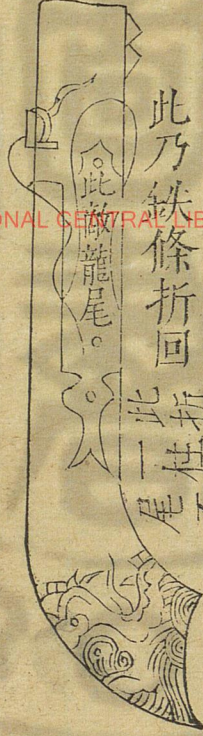 此乃鉄條折回
此敵龍尾
NAL CENTRAL LIB
此折
一柱
尾